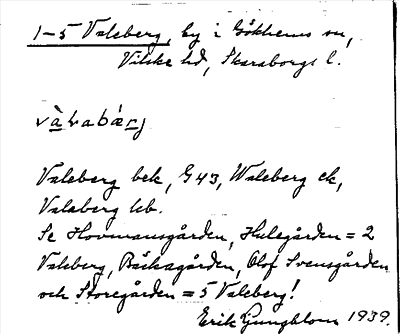 1-5 Valeberg, by i Gökhems sn,
Vilske hd, Skaraborgs l.
Valeberg bek, G 43, Waleberg ek,
Valaberg lib.
Se Hovmansgården, Hulegården = 2
Valeberg, Bäckagården, Olof Svensgården
och Storegården = 5 Valeberg!
Erik Ljungblom 1939.